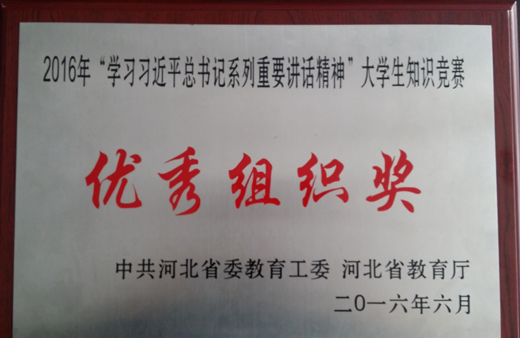 2016年“学习习近平总书记系列重要讲话精神”大学生知识竞赛
优秀组织奖
中共河北省委教育工委 河北省教育厅
二0一六年六月